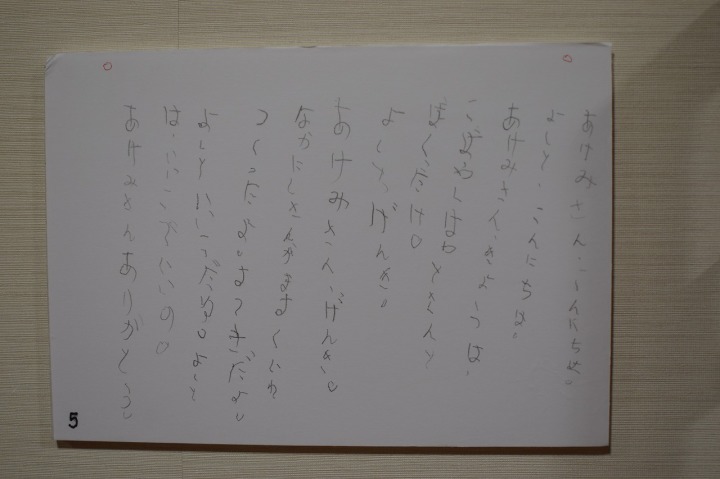 あけみさん、こんにちは。
よしと、こんにちは。
あけみさん、きょうは、
こばやしはやとさんと
ぼくだけ。
よしと、げんき。
あけみさん、げんき。
なかにしさんがますくいれ
つくったよ。
よしといいこだね。よしと
は、いいこでいいの。
あけみさんありがとう。
5